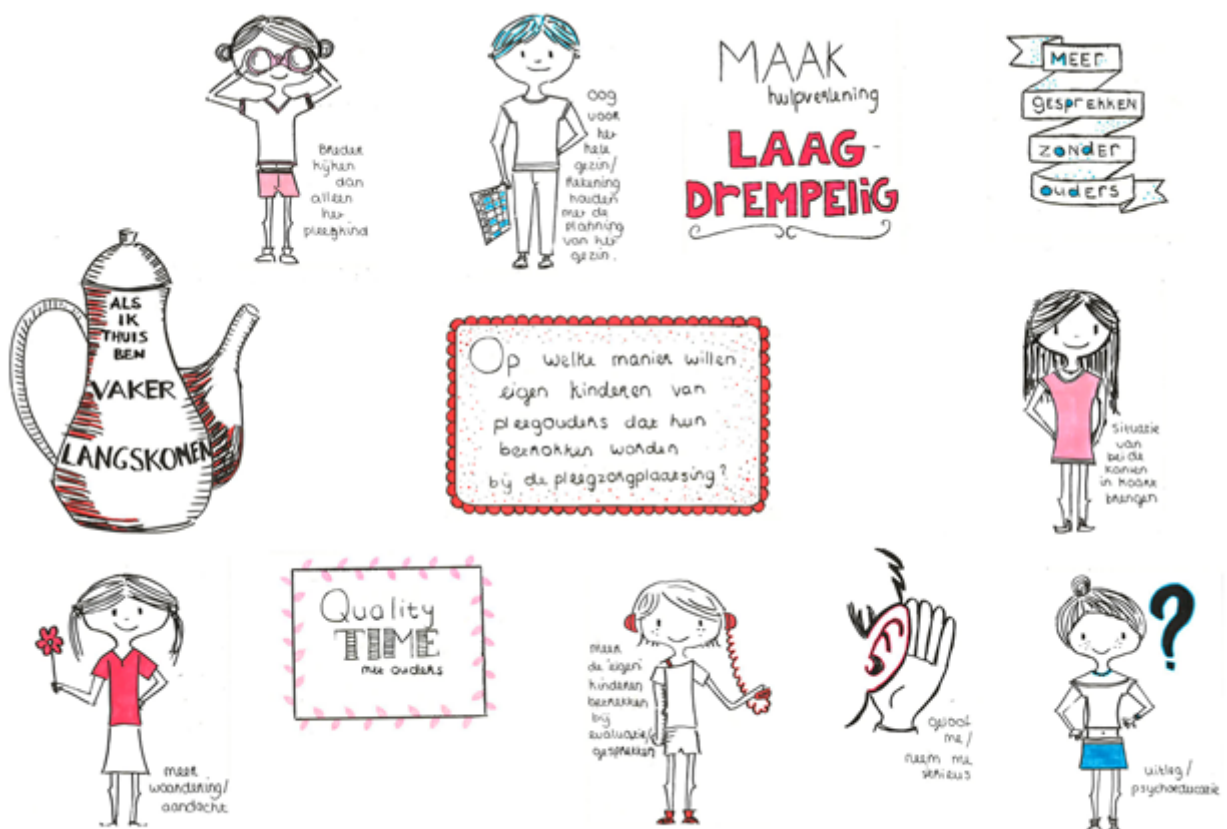 Breder
kijken
dan
alleen
het
pleegkind
Oog
voor
het
hele
gezin/
Rekening
houden
met de
planning
van het
gezin.
MAAK
hulpverlening
LAAG-
DREMPELIG
MEER
gesprekken
zonder
ouders
ALS
IK
THUIS
BEN
VAKER
LANGSKOMEN
Op welke manier willen
eigen kinderen van
pleegouders dat hun
betrokken worden
bij de pleegzorgplaatsing?
situatie
van
beide
kanten
in kaart
brengen
meer
waardering/
aandacht
Quality
TIME
met ouders
meer
de 'eigen'
kinderen
betrekken
bij
evaluatie/
gesprekken
geloof
me/
neem me
serieus
?
uitleg/
psychoeducatie